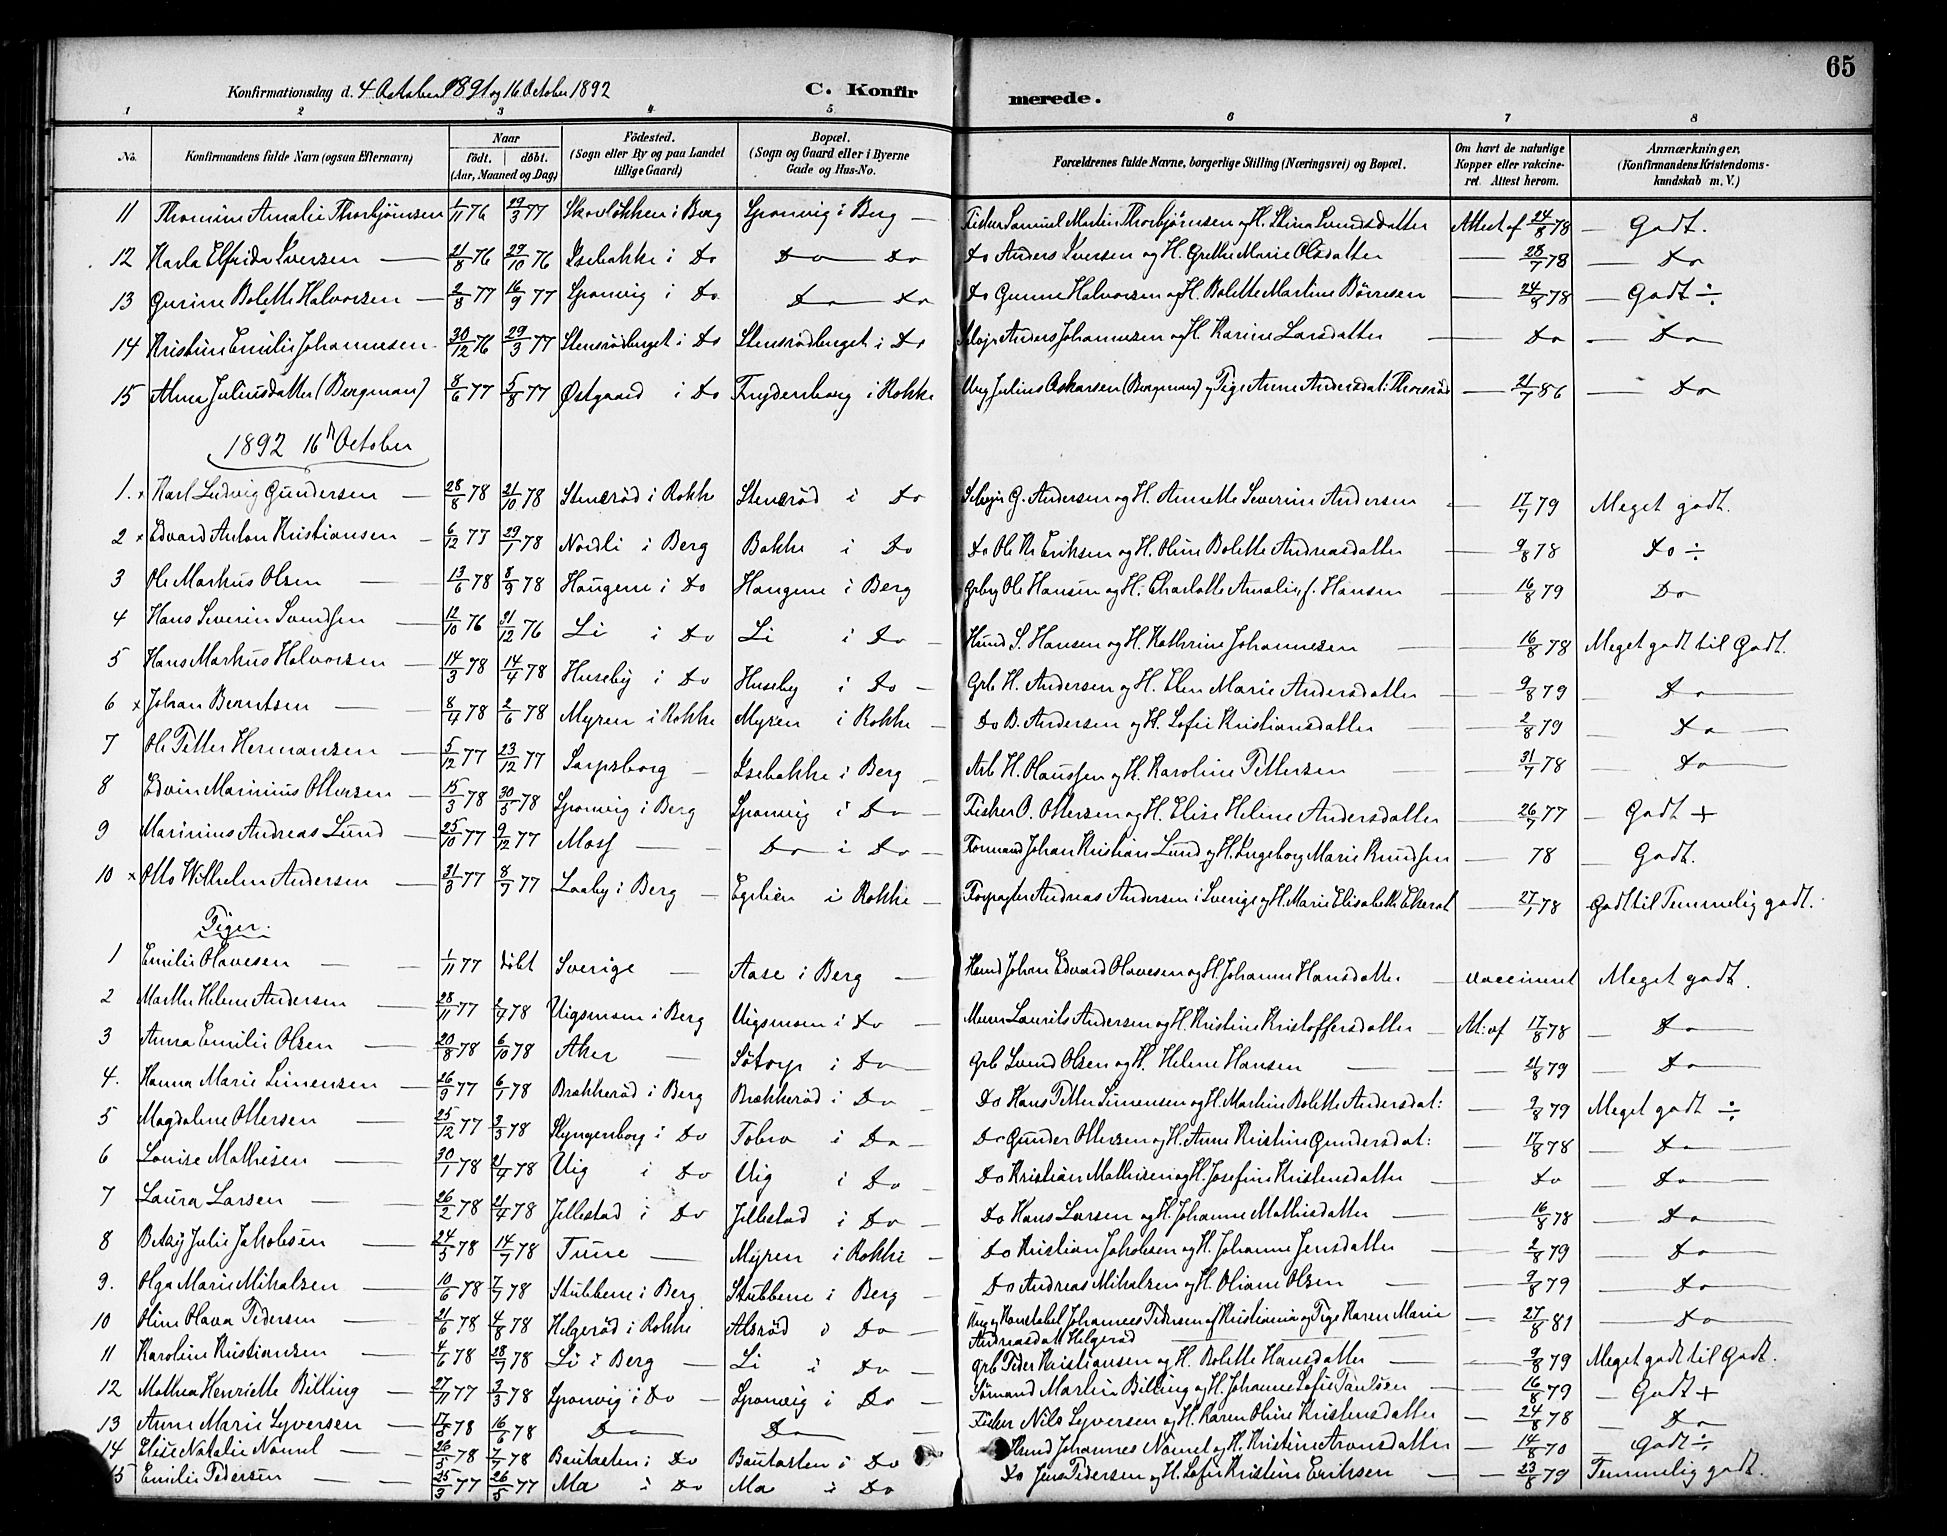 65
Konfirmationsdag d. 4 October 1891 og 16 October 1892 C. Konfirmerede.
1 2 3 4 5 6 7 8
No. Konfirmandens fulde Navn (ogsaa Efternavn) Naar födt. döbt. (Aar, Maaned og Dag) Födested. (Sogn eller By og paa Landet tillige Gaard) Bopæl. (Sogn og Gaard eller i Byerne Gade og Hus-No. Forældrenes fulde Navne, borgerlige Stilling (Næringsvei) og Bopæl. Om havt de naturlige Kopper eller vakcineret. Attest herom. Anmærkninger, (Konfirmandens Kristendomskundskab m. V.)
11 Thomine Amalie Thorbjönsen 1/11 76 29/3 77 Skovlökken i Berg Sponvig i Berg Fisker Samuel Martin Thorbjörnsen og H. Stina Svendsdatter Attest af 24/8 78 Godt.
12 Karla Elfrida Iversen 21/8 76 29/10 76 Isebakke i Do Do Do Do Anders Iversen og H. Grethe Marie Olsdatter 28/7 78 Do
13 Gurine Bolette Halvorsen 2/8 77 16/9 77 Sponvig i Do Do Do Do Gunne Halvorsen og H. Bolette Martine Börresen 24/8 78 Godt ÷
14 Kristine Emilie Johannesen 30/12 76 29/3 77 Stensrödberget i Do Stensrödberget i Do Selvejr Anders Johannesen og H. Karine Larsdatter Do Do
15 Alma Juliusdatter (Bergman) 8/6 77 5/8 77 Østgaard i Do Frydenborg i Rokke Ung Julius Oskarsen (Bergman) og Pige Anne Andersdat: Thorsröd 21/7 86 Do
1892 16 October
1. Karl Ludvig Gundersen 28/8 78 21/10 78 Stensröd i Rokke Stensröd i Do Selvejr G. Andersen og H. Annette Severine Andersen 17/7 79 Meget godt.
2 Edvard Anton Kristiansen 6/12 77 29/1 78 Nordli i Berg Bakke i Do Do Ole Kr Eriksen og H. Oline Bolette Andreasdatter 9/8 78 Do ÷
3 Ole Markus Olsen 13/6 78 8/9 78 Haugene i Do Haugene i Berg Grbrg Ole Hansen og H. Charlotte Amalie f. Hansen 16/8 79 Do
4 Hans Severin Svendsen 12/10 76 31/12 76 Li i Do Li i Do Hund S. Hansen og H. Kathrine Johannesen 16/8 78 Meget godt til Godt.
5 Hans Markus Halvorsen 14/3 78 14/4 78 Huseby i Do Huseby i Do Grb H. Andersen og H. Elen Marie Andersdatter 9/8 79 Do
6 Johan Berntsen 8/4 78 2/6 78 Myren i Rokke Myren i Rokke Do B. Andersen og H. Sofie Kristiansdatter 2/8 79 Do
7 Ole Petter Hermansen 5/12 77 23/12 77 Sarpsborg Isebakke i Berg Arb H. Olaussen og H. Karoline Pettersen 31/7 78 Do
8 Edvin Marinius Ottersen 15/3 78 30/5 78 Sponvig i Berg Sponvig i Do Fisker O. Ottersen og H. Elise Helene Andersdatter 26/7 77 Godt +
9 Marinius Andreas Lund 25/10 77 9/12 77 Moss Do i Do Formand Johan Kristian Lund og H. Ingeborg Marie Knudsen 78 Godt.
10 Otto Wilhelm Andersen 31/3 77 8/7 77 Laaby i Berg Eglien i Rokke Forpagter Andreas Andersen i Sverige og H. Marie Elisabeth 27/7 78 Godt til Temmelig godt.
Piger.
1 Emilie Olavesen 1/11 77 döbt Sverige Aase i Berg Hmd Johan Edvard Olavesen og H. Johanne Hansdatter vaccineret Meget godt.
2 Marthe Helene Andersen 28/11 77 2/4 78 Uigsmoen i Berg Uigsmoen i Do Murer Laurits Andersen og H. Kristine Kristoffersdatter At: af 17/8 78 Do
3 Anna Emilie Olsen 20/8 78 6/10 78 Aker Sötorp i Do Grb Svend Olsen og H. Helene Hansen 21/8 79 Do
4. Hanna Marie Simensen 26/9 77 6/1 78 Brækkeröd i Berg Brækkeröd i Do Do Hans Petter Simensen og H. Martine Bolette Andersdat: 9/8 79 Meget godt ÷
5 Magdalene Ottersen 25/12 77 3/3 78 Skyngenborg i Do Tobro i Do Do Gunder Ottersen og H. Anne Kristine Gundersdat: 17/8 78 Do
6 Lovise Mathisen 30/1 78 21/4 78 Uig i Do Uig i Do Do Kristian Mathisen og H. Josefine Kristensdatter Do Do
7 Laura Larsen 26/2 78 21/4 78 Jellestad i Do Jellestad i Do Do Hans Larsen og H. Johanne Mathisdatter 16/8 78 Do
8 Betzy Julie Jakobsen 24/5 78 14/7 78 Tune Myren i Rokke Do Kristian Jakobsen og H. Johanne Jensdatter 2/8 79 Do
9. Olga Marie Mikalsen 10/6 78 7/7 78 Stubbene i Berg Stubbene i Berg Do Andreas Mikalsen og H. Oliane Olsen 9/8 79 Do
10 Oline Olava Pedersen 21/6 78 4/8 78 Helgeröd i Rokke Alsröd i Do Ung Konstabel Johannes Pedersen af Kristiania og Pige Karen Marie Andreasdatt Helgeröd 27/8 81 Do
11 Karoline Kristiansen 4/6 78 28/7 78 Li i Berg Li i Do Grb Peder Kristiansen og H. Bolette Hansdatter 9/8 79 Meget godt til Godt.
12 Mathea Henriette Billing 27/11 77 3/3 78 Sponvig i Do Sponvig i Do Sömand Martin Billing og H. Johanne Sofie Paulsen 16/8 79 Godt +
13 Anne Marie Syversen 17/8 78 16/6 78 Do Do Fisker Nils Syversen og H. Karen Oline Kristensdatter 24/8 78 Do
14 Elise Natalie Nomel 26/5 78 7/7 78 Bautasten i Do Bautasten i Do Hmd Johannes Nomel og H. Kristine Aronsdatter 14/8 70 Godt ÷
15 Emilie Pedersen 25/3 77 26/5 77 Mo i Do Mo i Do Do Jens Pedersen og H. Sofie Kristine Eriksen 23/8 79 Temmelig godt.